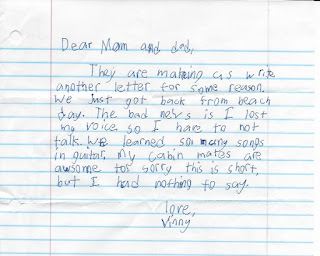 Dear Mom and ded,
They are making us write
another letter for some reason.
We just got back from beach
day. The bad news is I lost
my voice so I have to not
talk. We learned so many songs
in guitar. My cabin mates are
awsome too sorry this is short,
but I had nothing to say.
love,
Vinny